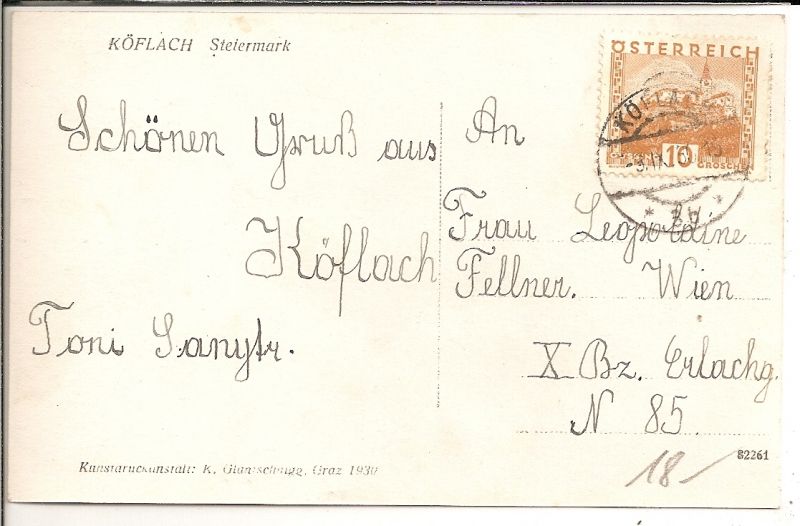 KÖFLACH Steiermark
ÖSTERREICH
10
GROSCHEN
KÖFLACH
Schönen Gruß aus
Köflach
Toni
An
Frau Leopoldine
Fellner. Wien
X Bz. Erlachg.
N 85.
Kunstdruckanstalt: K. Graz 1930
82261
18-